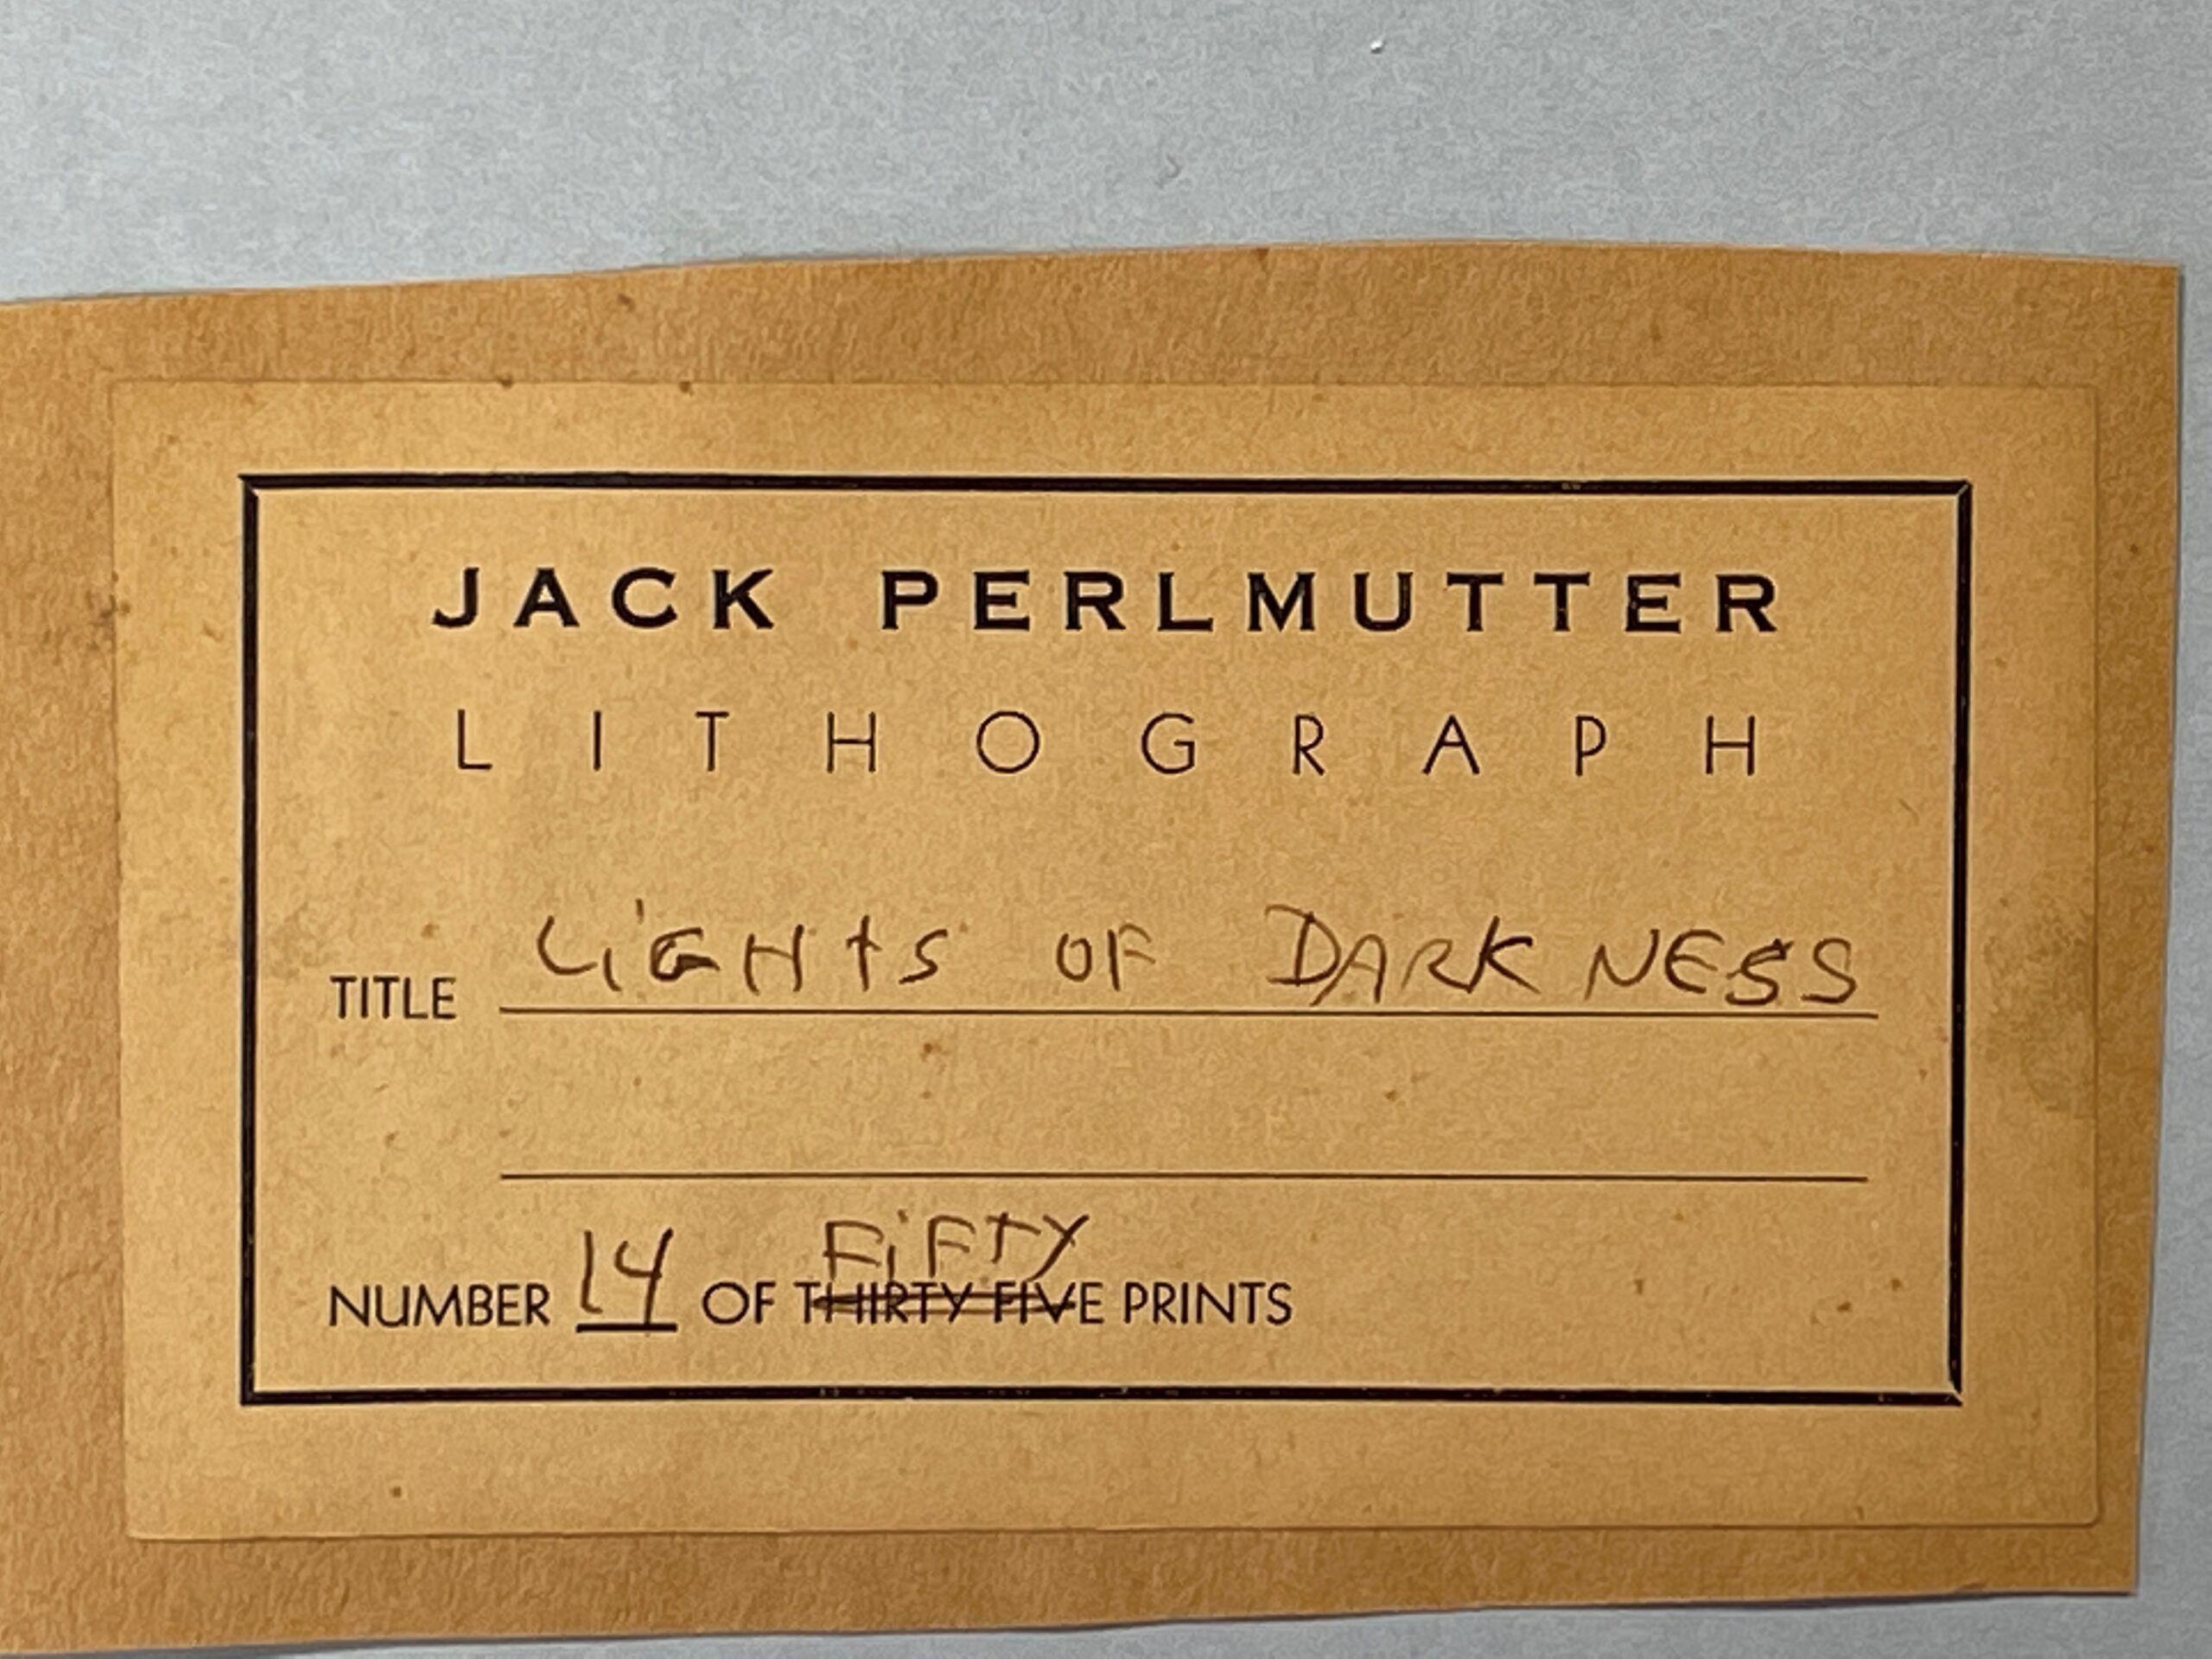 JACK PERLMUTTER
LITHOGRAPH
TITLE LiGHtS OF DARKNESS
FiFTY
NUMBER 14 OF THIRTY FIVE PRINTS